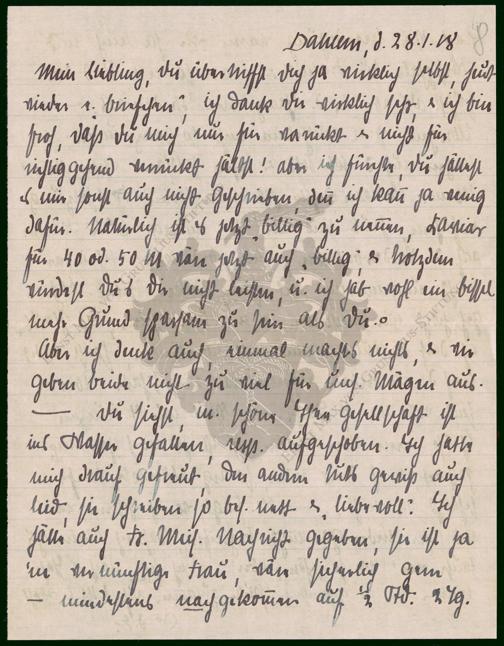 Dahlem, d. 28.1.18
Mein Liebling, du übertriffst dich ja wirklich selbst, heut
wieder 1 Briefchen, ich dank dir wirklich sehr, & ich bin
froh, daß du mich nur für verrückt & nicht für
richtiggehend verrückt hältst! aber ich fürchte, du hättest
es mir sonst auch nicht geschrieben, den ich kan ja wenig
dafür. Natürlich ist es jetzt "billig" zu nenen, Kaviar
für 40 od. 50 M wär jetzt auch "billig", & trotzdem
würdest du's dir nicht leisten, u. ich hab wohl ein bissel
mehr Grund sparsam zu sein als du.
Aber ich denke auch, einmal machts nichts, & wir
geben beide nicht zu viel für uns. Mägen aus.
— du siehst, m. schöne Gesellschaft ist
ins Wasser gefallen, resp. aufgeschoben. Ich hatte
mich drauf gefreut, den andern tuts gewiss auch
leid, sie schreiben so bes. nett & "liebevoll". Ich
hätte auch Fr. Meis. Nachricht gegeben, sie ist ja
'ne vernünftige Frau, wär sicherlich gern
— mindestens nachgekomen auf ½ Std.